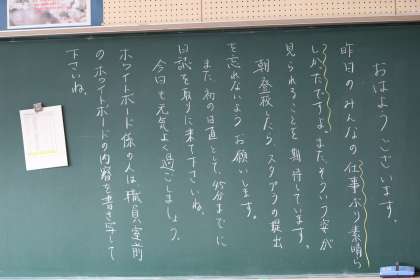 おはようございます。
昨日のみんなの仕事ぶり素晴ら
しかったですよ。またそういう姿が
見られることを期待しています。
朝登校したら、スタプラの提出
を忘れないようお願いします。
また、初の日直として、45分までに
日誌を取りに来て下さいね。
今日も元気よく過ごしましょう。
ホワイトボード係の人は職員室前
のホワイトボードの内容を書き写して
下さいね。